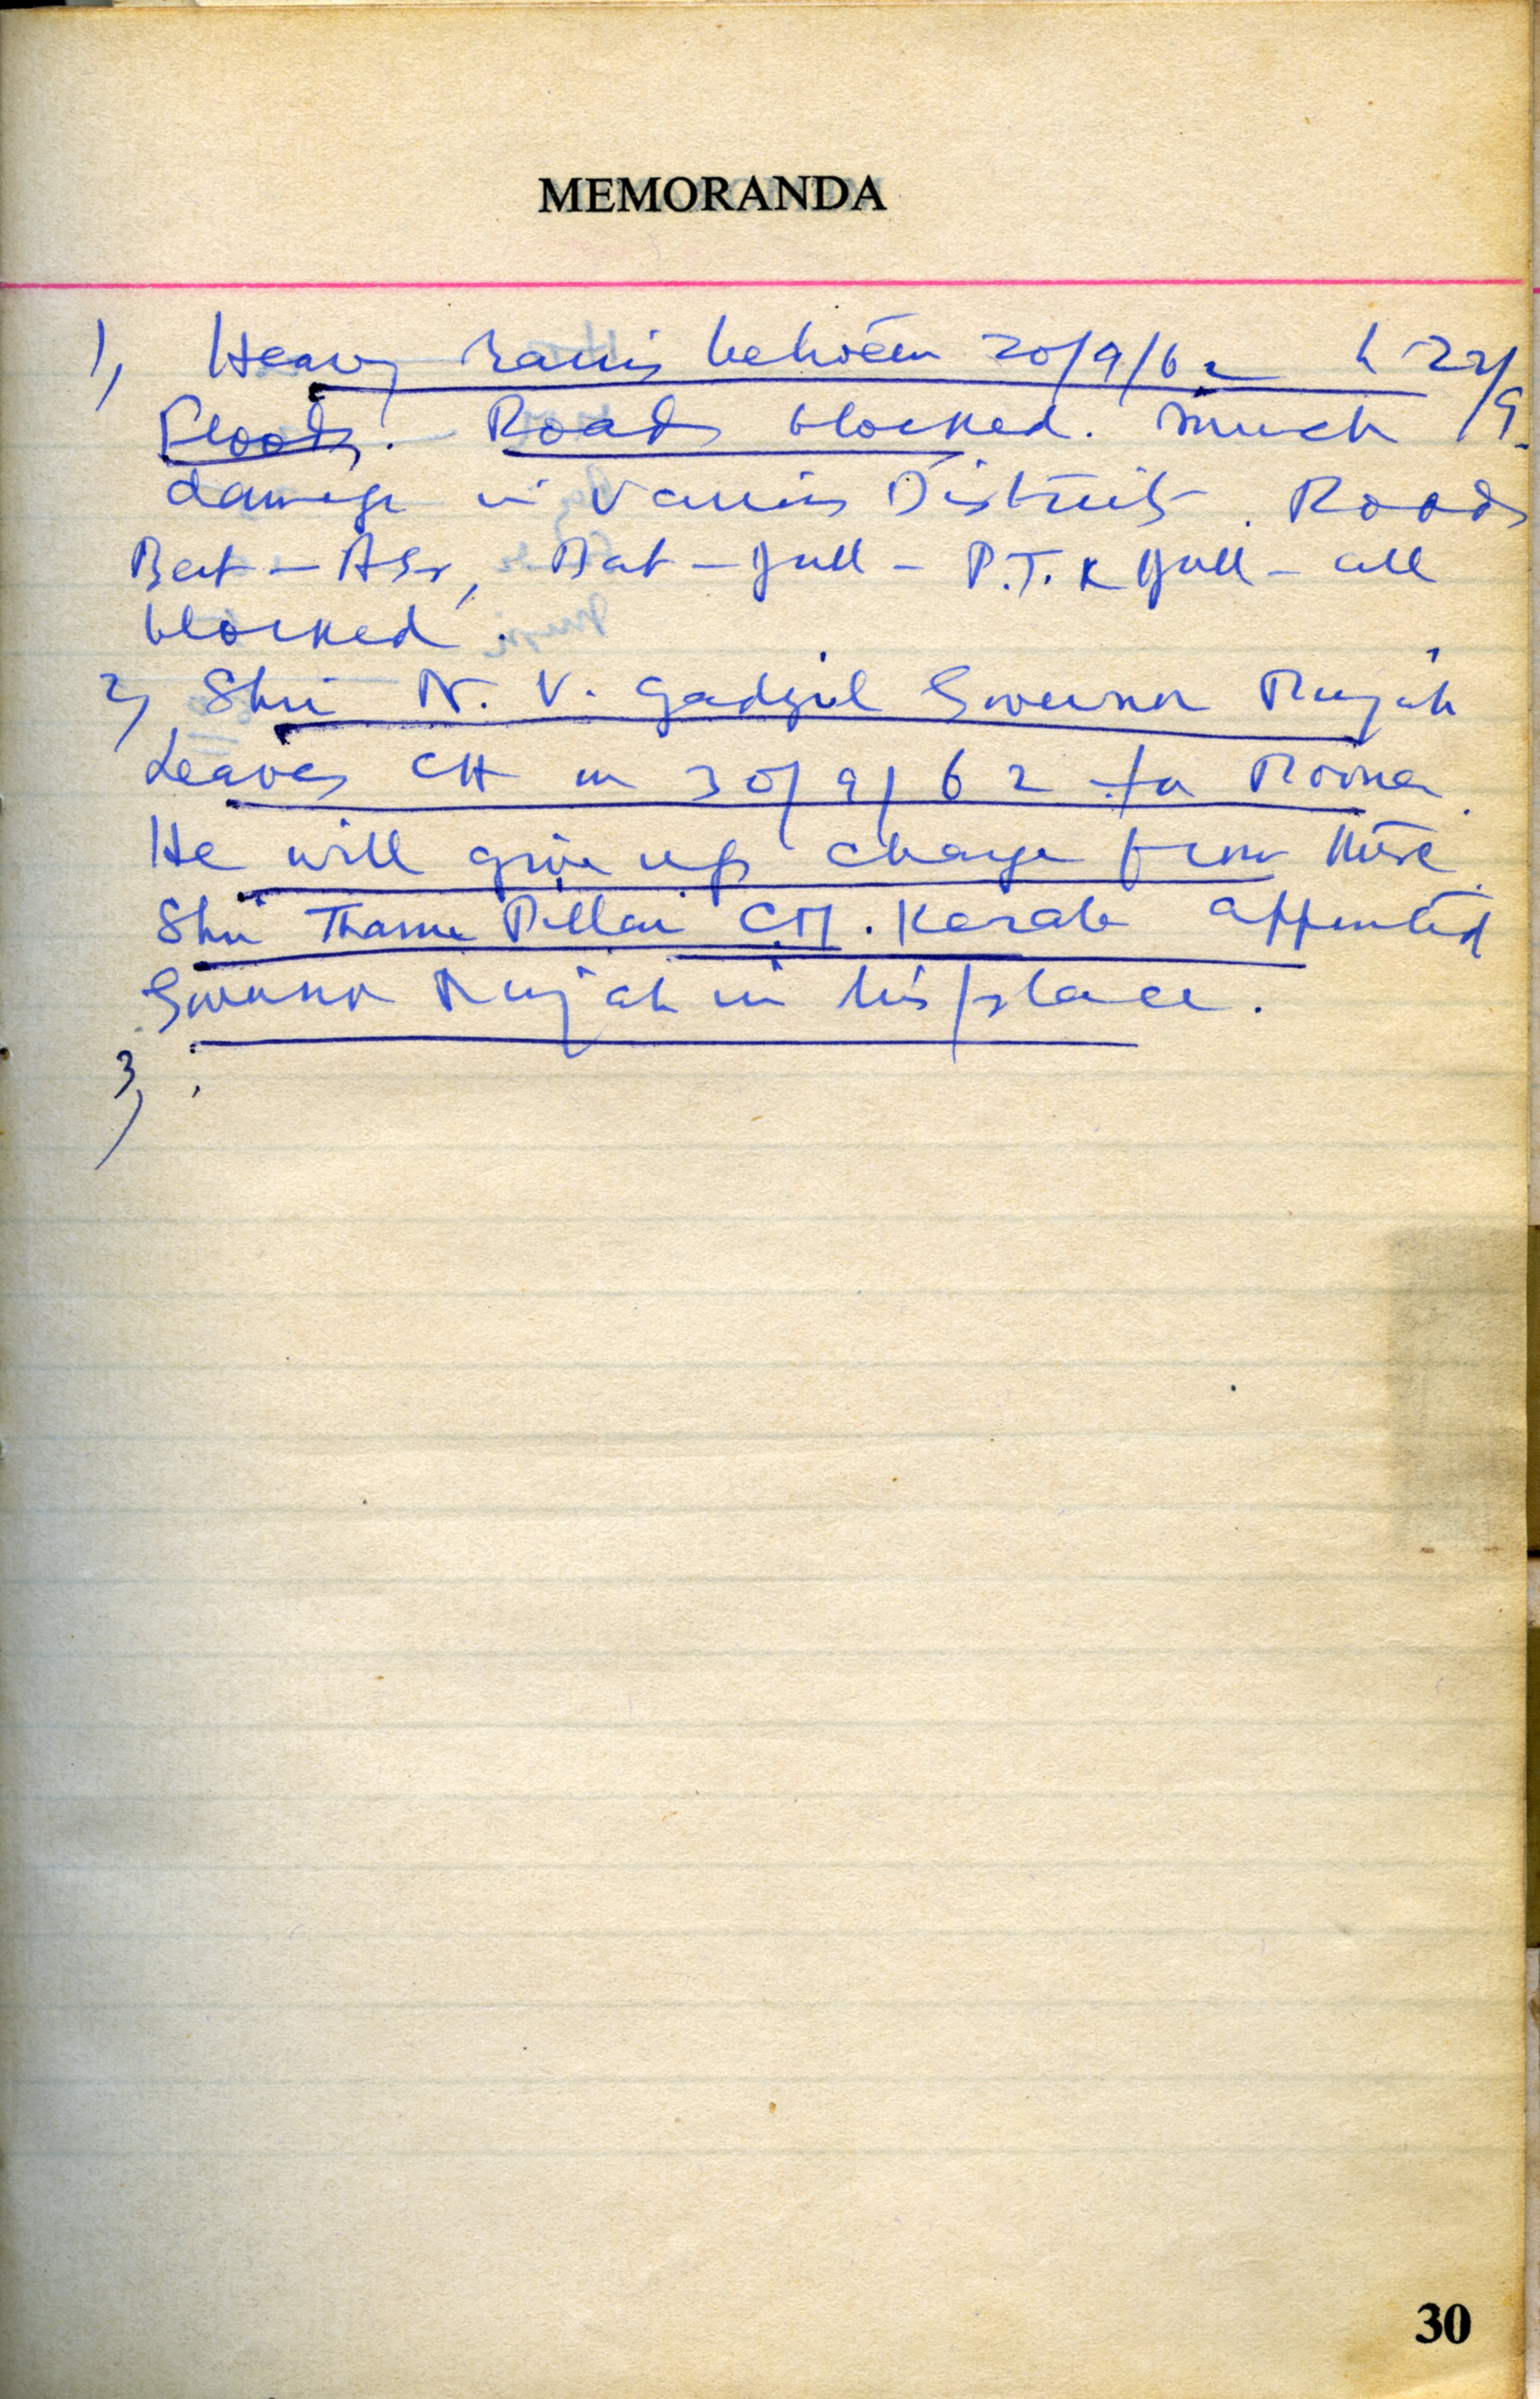 MEMORANDA
1) Heavy rains between 20/9/62 to 22/9
Floods. Roads blocked. Much
damage in various Districts. Roads
Bat - ASr, Bat - Jull - P.T.K Jull - all
blocked.
2) Shri N. V. Gadgil Governor Punjab
Leaves CH on 30/9/62 for Poona.
He will give up charge from there.
Shri Thanu Pillai CM. Kerala appointed
Governor Punjab in his place.
3)
30